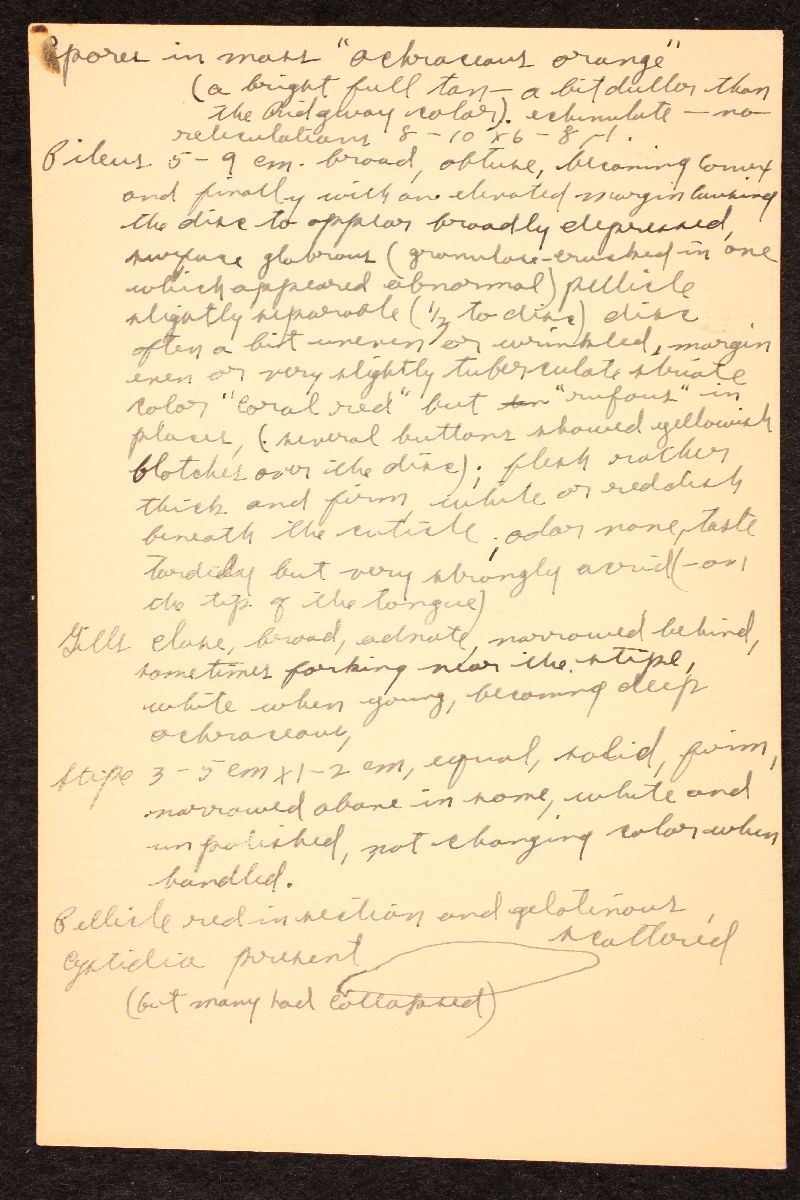 Spores in mass "ochraceous orange"
(a bright full tan — a bit duller than
the Ridgway color). echinulate — no
reticulations 8-10 x 6-8
Pileus 5-9 cm. broad, obtuse, becoming convex
and finally with an elevated margin causing
the disc to appear broadly depressed,
surface glabrous (granulose-crusted in one
which appeared abnormal) pellicle
slightly separable (1/2 to disc) disc
often a bit uneven or wrinkled, margin
even or very slightly tuberculate striate
color "coral red" but "rufous" in
places, (several buttons showed yellowish
blotches over the disc); flesh rather
thick and firm, white or reddish
beneath the cuticle; odor none, taste
tardily but very strongly acrid (-on
the tip of the tongue)
Gills close, broad, adnate, narrowed behind,
sometimes forking near the stipe,
white when young, becoming deep
ochraceous,
Stipe 3-5 cm x 1-2 cm, equal, solid, firm,
narrowed above in some, white and
unpolished, not changing color when
handled.
Pellicle red in section and gelatinous,
Cystidia present scattered
(but many had collapsed)